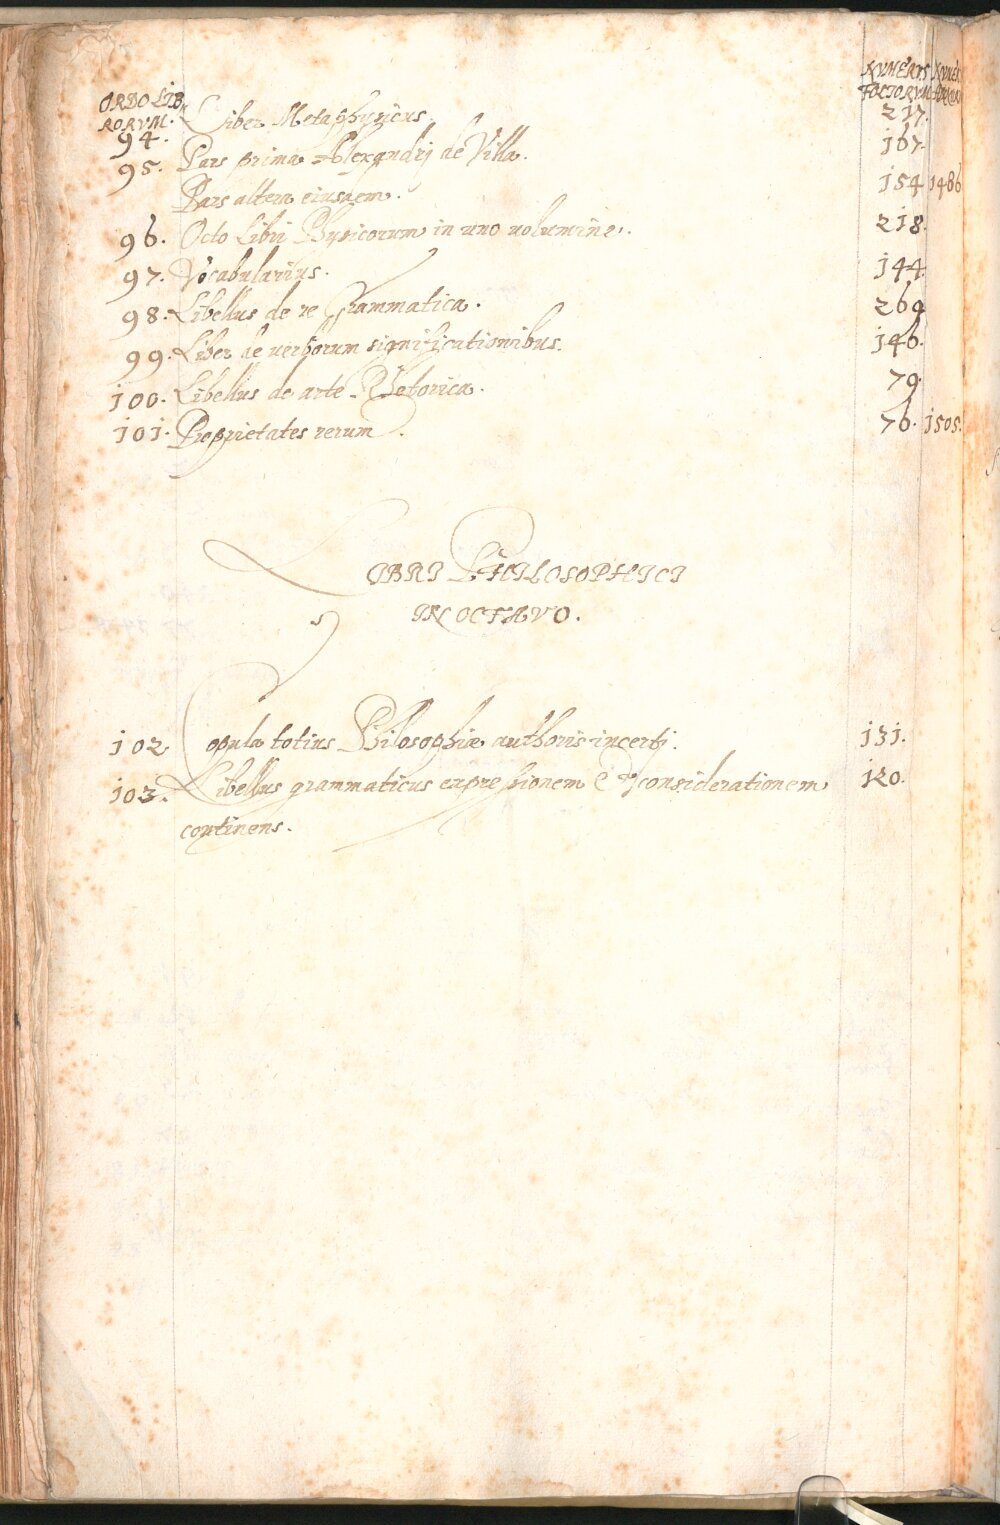 ORDO LIB NVMERVS NVME
RORVM. FOLIORVM
94. Liber Metaphysicus. 217.
95. Pars prima Alexandrj de Villa. 167.
Pars altera eiusdem. 154 1486
96. Octo Libri Physicorum in uno uolumine. 218.
97. Vocabularius. 144.
98. Libellus de re Grammatica. 269
99. Liber de uerborum significationibus. 146.
100. Libellus de arte Rhetorica. 79.
101. Proprietates rerum. 76. 1505.
LIBRI PHILOSOPHICI
IN OCTAVO.
102. Copula totius Philosophiæ authoris incertj. 131.
103. Libellus grammaticus expressionem & considerationem 120.
continens.